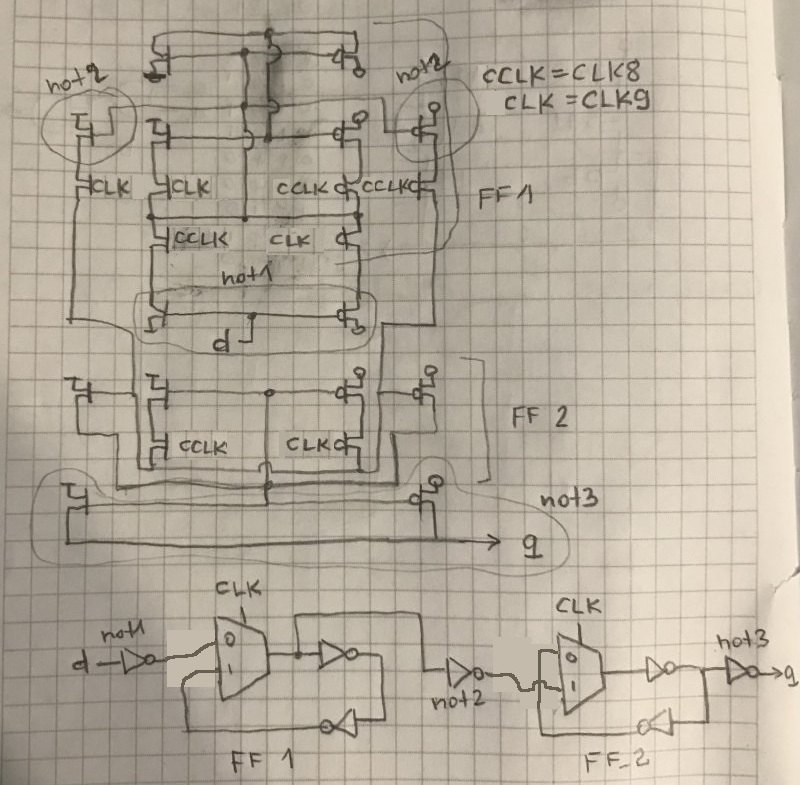 not2
not2
CCLK = CLK8
CLK = CLK9
CLK
CLK
CCLK
CCLK
FF1
CCLK
CLK
not1
d
FF 2
CCLK
CLK
not3
q
CLK
CLK
d
not1
0
1
not2
0
1
not3
q
FF 1
FF_2